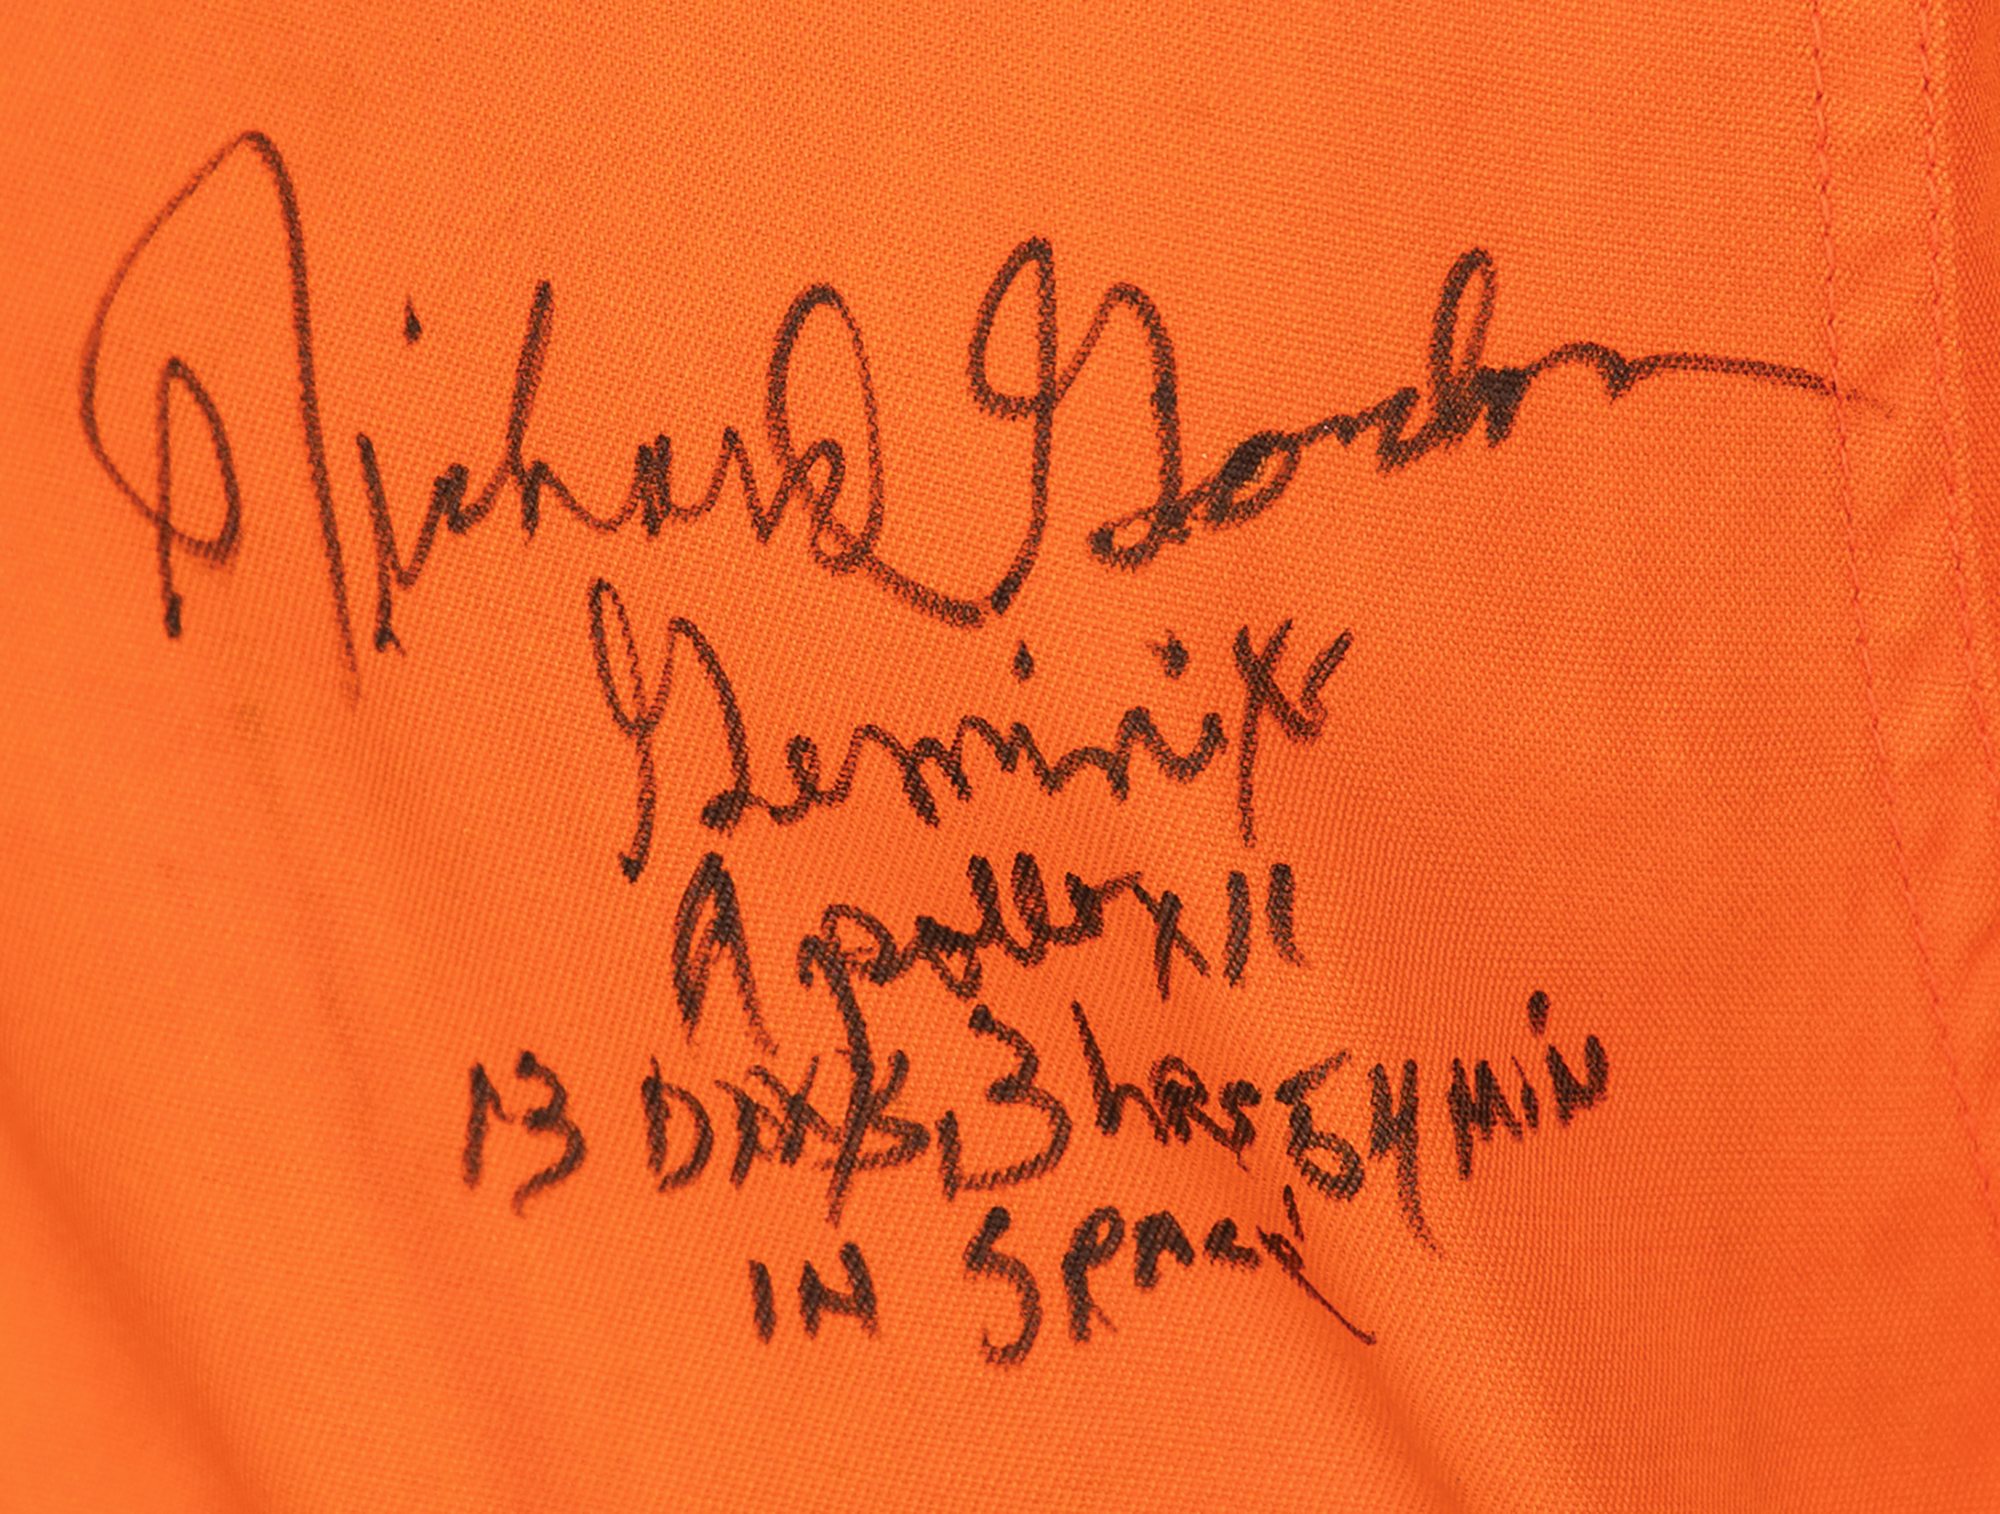 Richard Gordon
Gemini XI
Apollo XII
13 DAYS, 3 hRS 54 MiN
IN SPACE